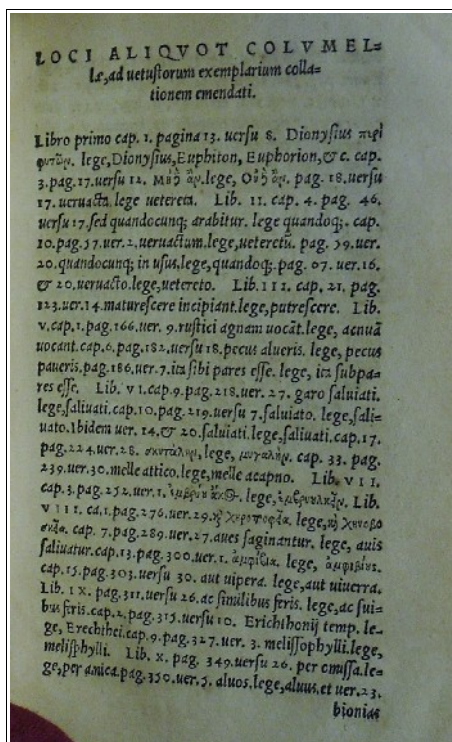 LOCI ALIQVOT COLVMEL=
læ, ad uetuſtorum exemplarium colla=
tionem emendati.
Libro primo cap. 1. pagina 13. uerſu 8. Dionyſius περὶ
φυτῶν. lege, Dionyſius, Euphiton, Euphorion, & c. cap.
3. pag. 17. uerſu 12. Μοὺ ἂν. lege, Οὐ ἂν. pag. 18. uerſu
17. ueruacta. lege uetereta. Lib. 11. cap. 4. pag. 46.
uerſu 17. ſed quandocunq; arabitur. lege quandoq;. cap.
10. pag. 57. uer. 2. ueruactum. lege, ueteretũ. pag. 59. uer.
20. quandocunq; in uſus. lege, quandoq;. pag. 67. uer. 16.
& 20. ueruacto. lege, uetereto. Lib. 111. cap. 21. pag.
123. uer. 14. matureſcere incipiant. lege, putreſcere. Lib.
v. cap. 1. pag. 166. uer. 9. ruſtici agnam uocãt. lege, acnuã
uocant. cap. 6. pag. 182. uerſu 18. pecus alueris. lege, pecus
paueris. pag. 186. uer. 7. ita ſibi pares eſſe. lege, ita ſubpa=
res eſſe. Lib. v1. cap. 9. pag. 218. uer. 27. garo ſaluiati.
lege, ſaliuati. cap. 10. pag. 219. uerſu 7. ſaluiato. lege, ſali=
uato. Ibidem uer. 14. & 20. ſaluiati. lege, ſaliuati. cap. 17.
pag. 224. uer. 28. σκυτάλην, lege, μυγαλῆν. cap. 33. pag.
239. uer. 30. melle attico. lege, melle acapno. Lib. v11.
cap. 3. pag. 252. uer. 1. lege, Lib.
v111. ca. 1. pag. 276. uer. 29. lege,
cap. 7. pag. 289. uer. 27. aues ſaginantur. lege, auis
ſaliuatur. cap. 13. pag. 300. uer. 1. ἀμφίβια. lege, ἀμφιβίοις.
cap. 15. pag. 303. uerſu 30. aut uipera. lege, aut uiuerra.
Lib. 1x. pag. 311. uerſu 26. ac ſimilibus feris. lege, ac ſui=
bus feris. cap. 2. pag. 315. uerſu 10. Erichthonij temp. le=
ge, Erechthei. cap. 9. pag. 327. uer. 3. meliſſophylli. lege,
meliſphylli. Lib. x. pag. 349. uerſu 26. per cmiſſa. le=
ge, per amica. pag. 350. uer. 5. aluos. lege, aluus. et uer. 23.
bionias